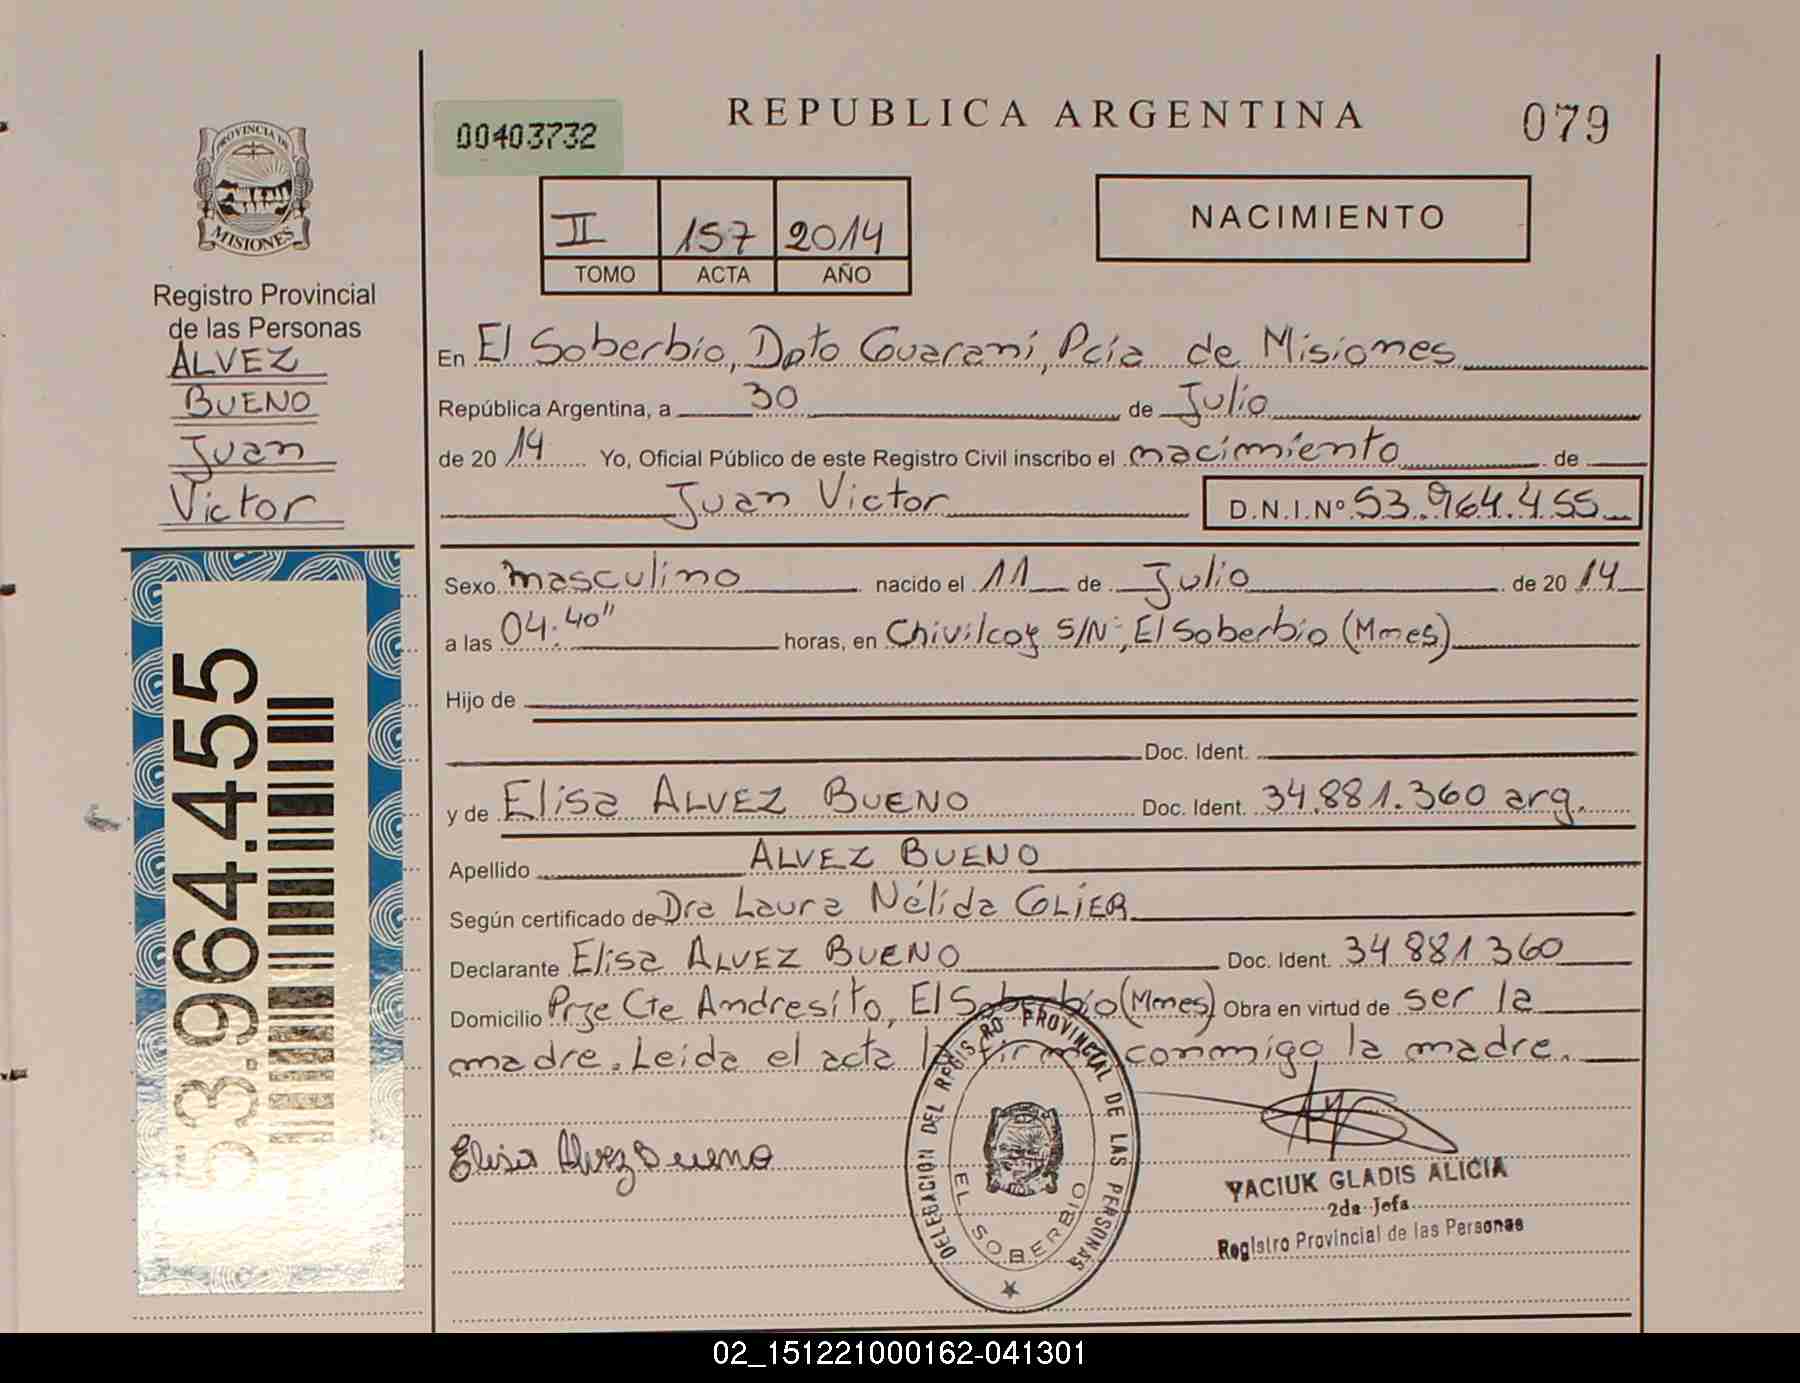 PROVINCIA DE
MISIONES
Registro Provincial
de las Personas
ALVEZ
BUENO
Juan
Victor
53.964.455
00403732
REPUBLICA ARGENTINA
079
II 157 2014
TOMO ACTA AÑO
NACIMIENTO
En El Soberbio, Dpto Guarani, Pcia de Misiones
República Argentina, a 30 de Julio
de 2014 Yo, Oficial Público de este Registro Civil inscribo el nacimiento de
Juan Victor D.N.I.Nº 53.964.455
Sexo masculino nacido el 11 de Julio de 2014
a las 04:40" horas, en Chivilcoy S/Nº, El Soberbio (Mnes)
Hijo de
Doc. Ident.
y de Elisa ALVEZ BUENO Doc. Ident. 34.881.360 arg.
Apellido ALVEZ BUENO
Según certificado de Dra Laura Nélida GLIER
Declarante Elisa ALVEZ BUENO Doc. Ident. 34 881 360
Domicilio Prje Cte Andresito, El Soberbio (Mnes) Obra en virtud de ser la
madre. Leida el acta la firma conmigo la madre.
Elisa Alvez Bueno
DELEGACION DEL REGISTRO PROVINCIAL DE LAS PERSONAS
EL SOBERBIO
YACIUK GLADIS ALICIA
2da Jefa
Registro Provincial de las Personas
02_151221000162-041301